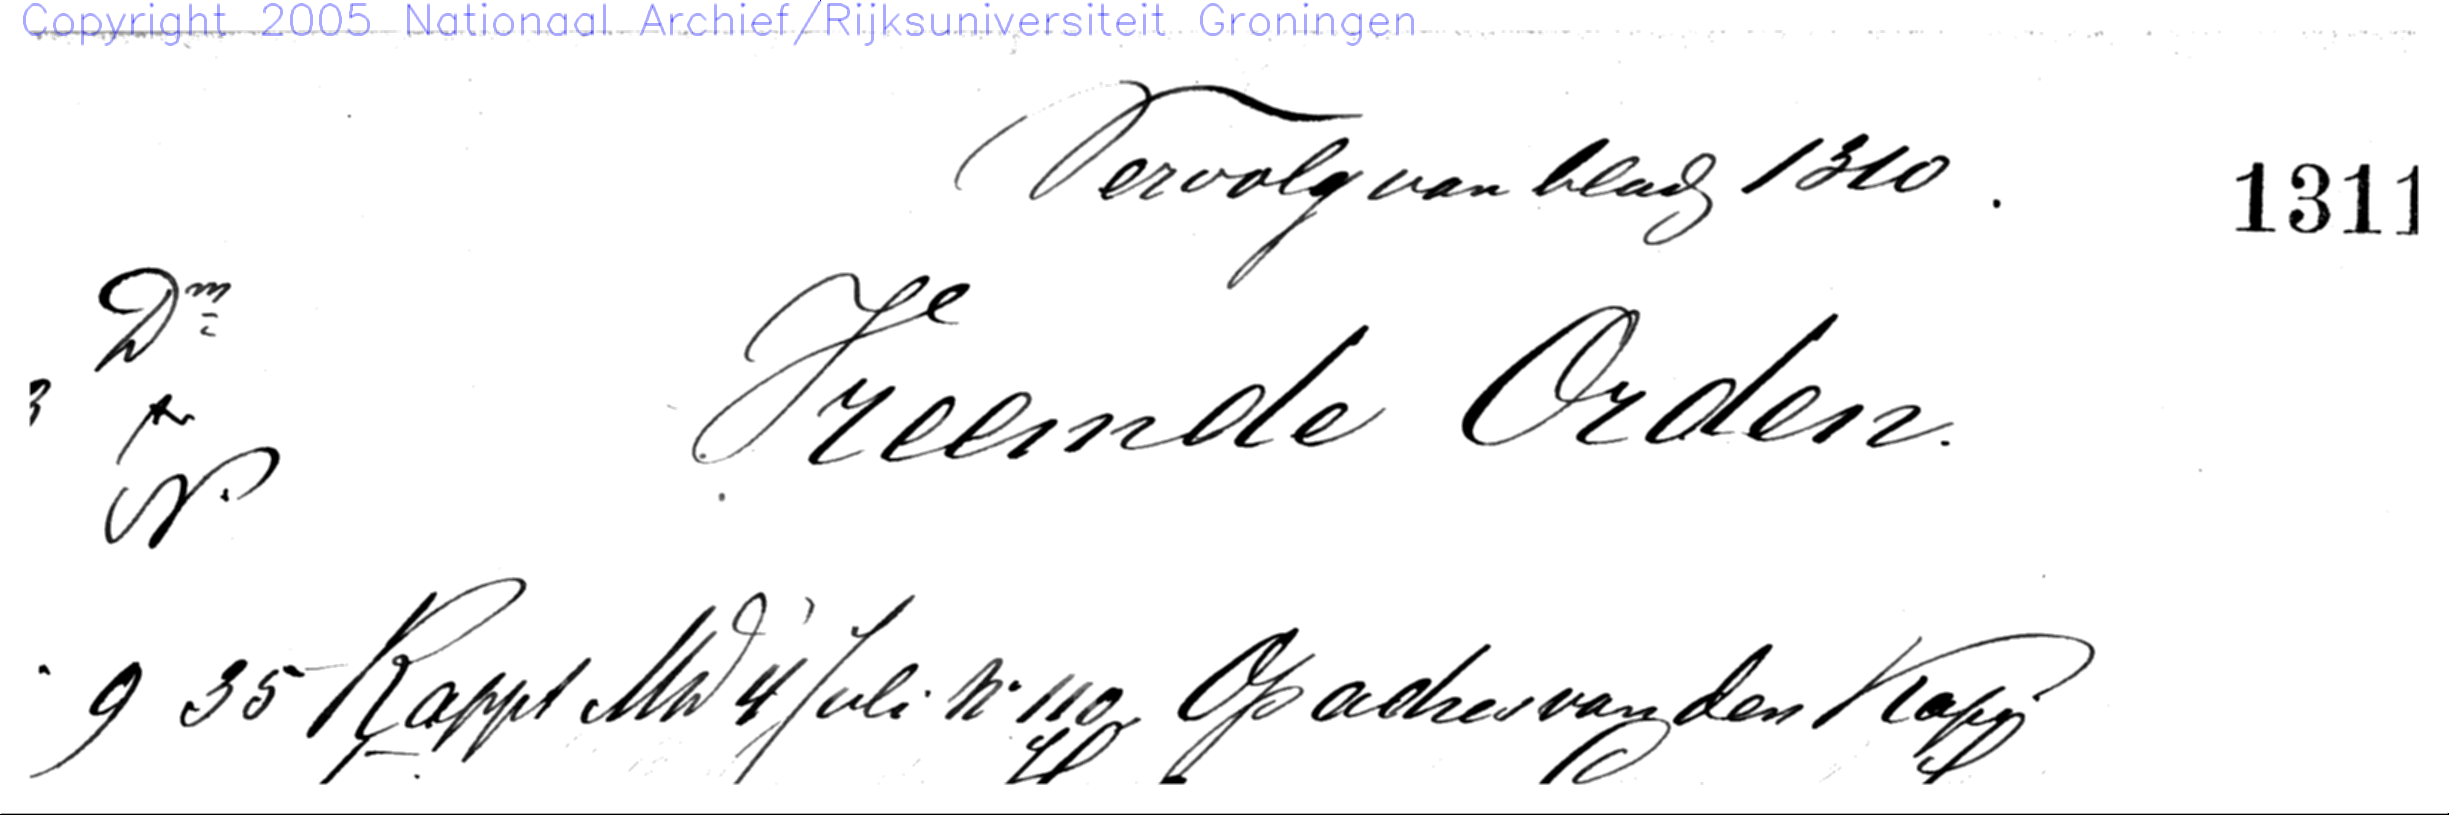 Copyright 2005 Nationaal Archief/Rijksuniversiteit Groningen
Vervolg van bladz 1310. 1311
Dm
Vreemde Orden.
No.
9 35 Rappt MW 4 Juli No 110 Op adres van den Kapt